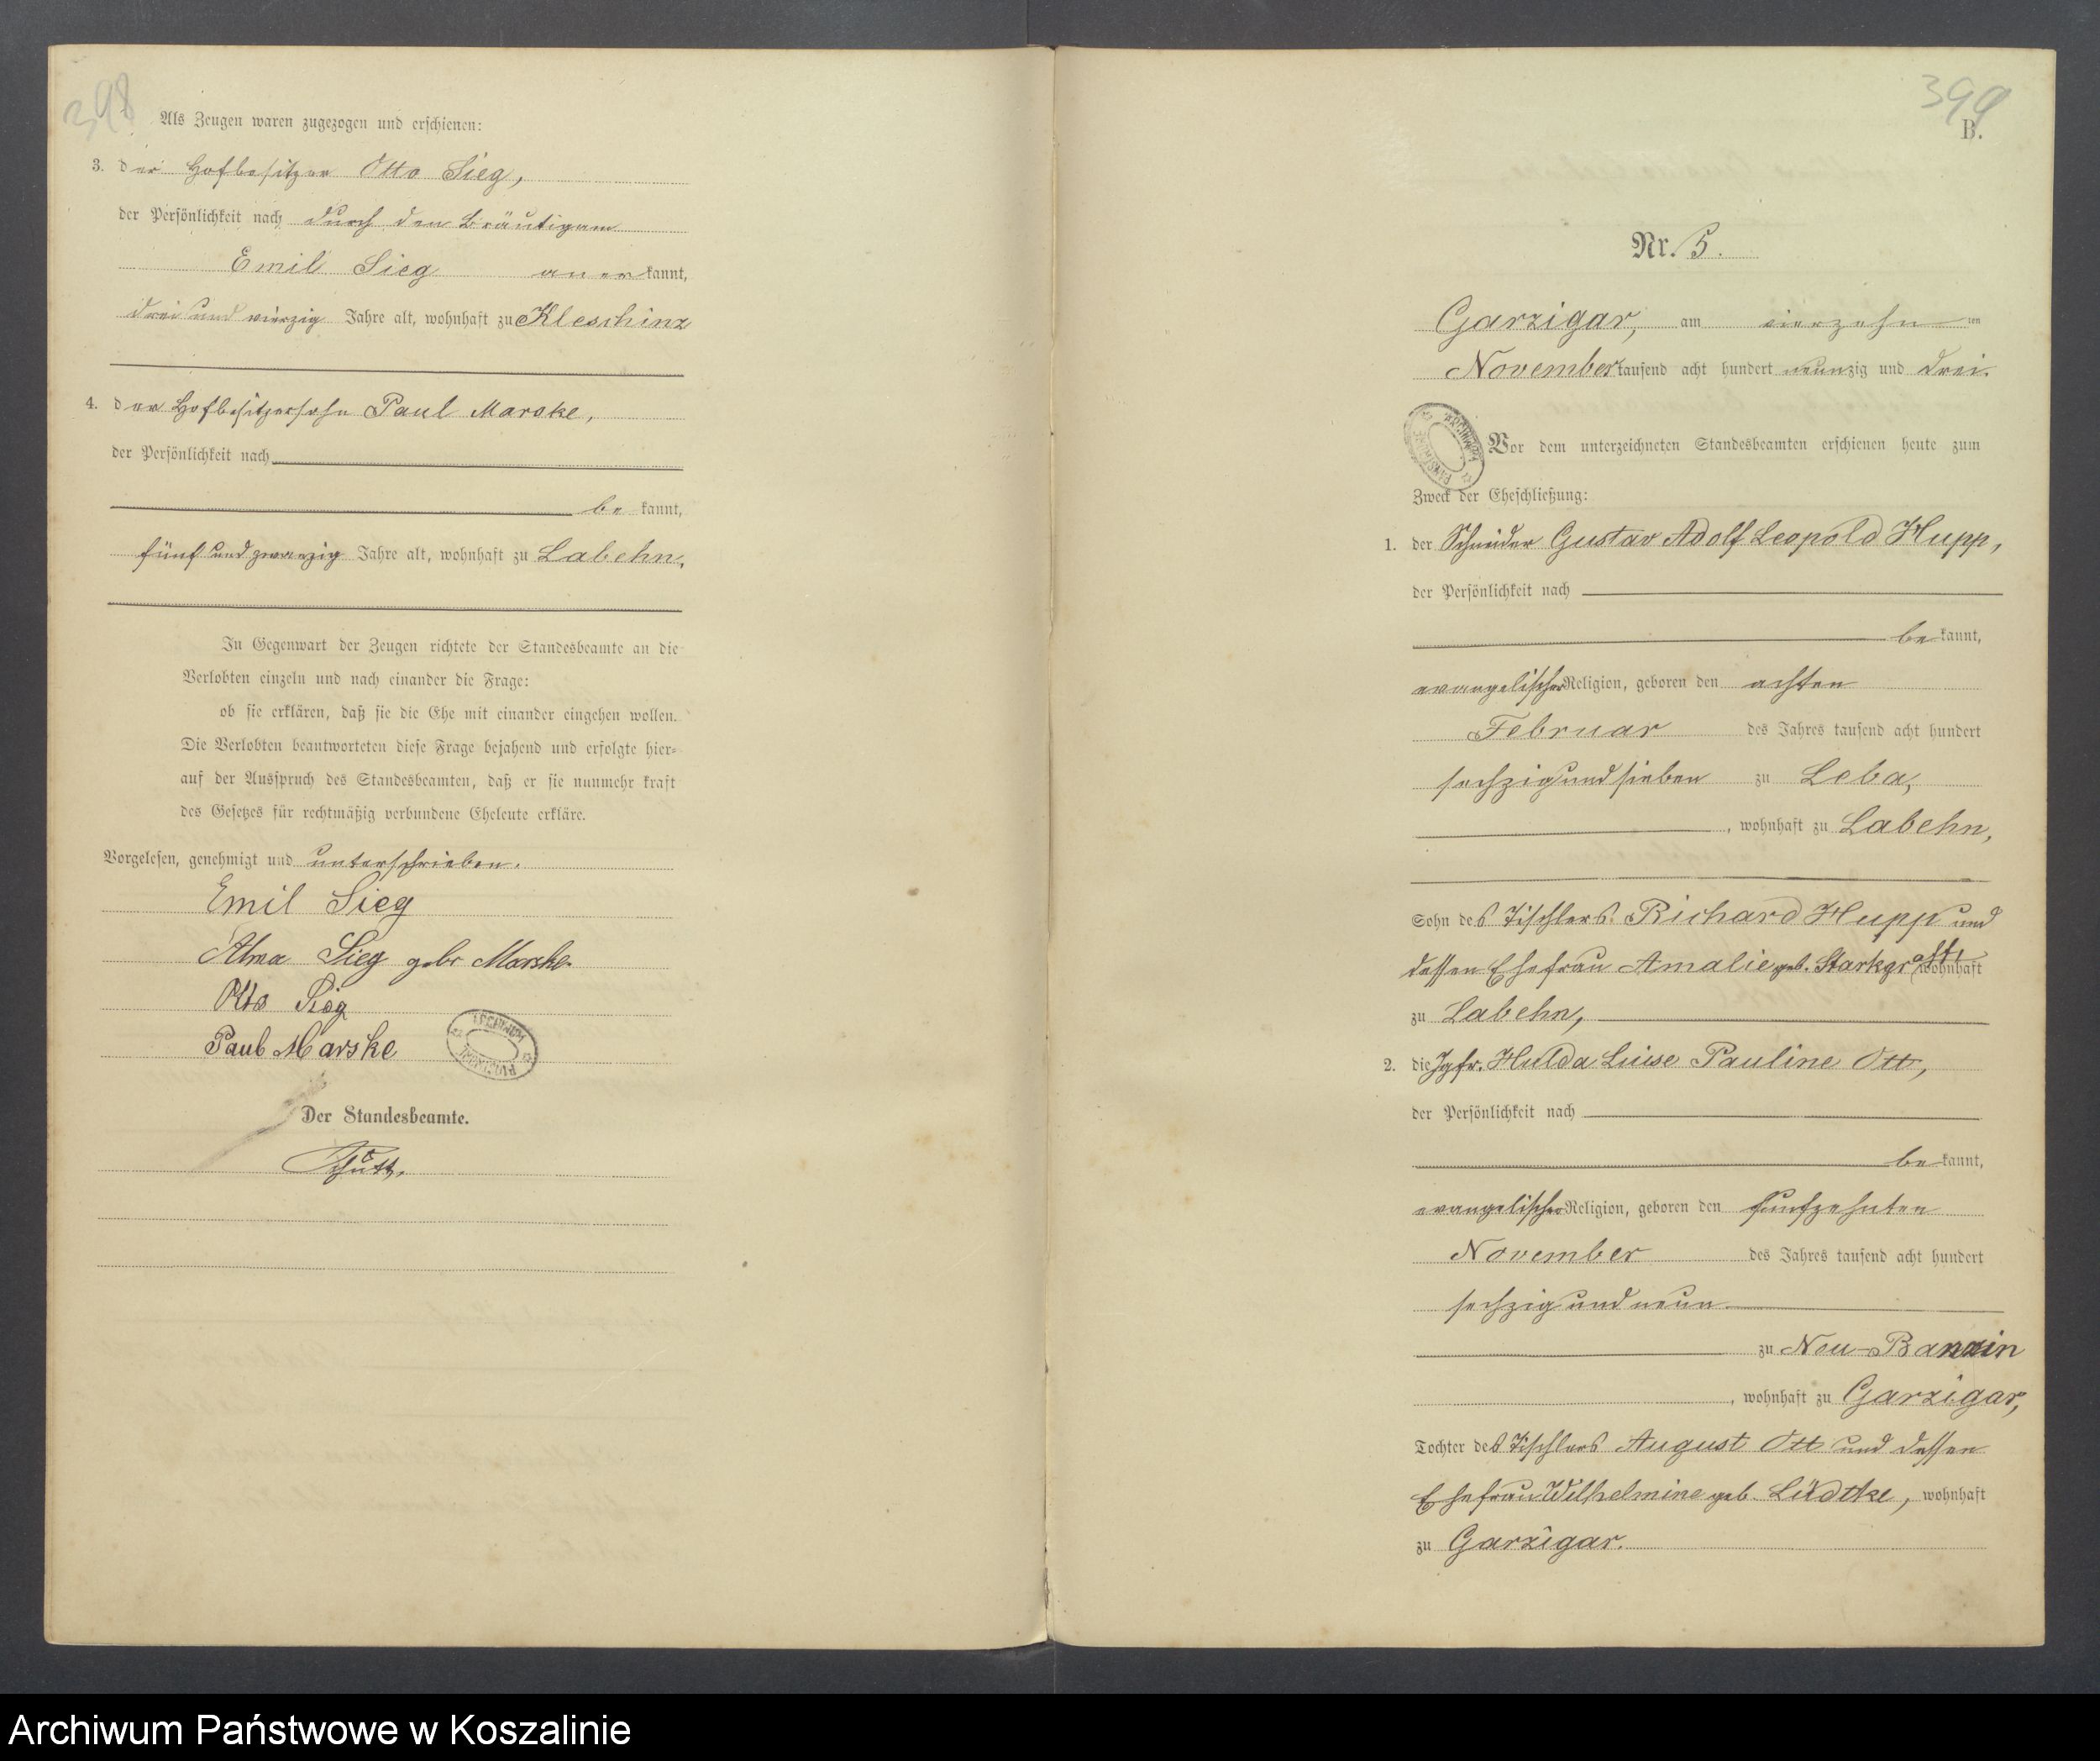 398
Als Zeugen waren zugezogen und erschienen:
3. der Hofbesitzer Otto Sieg,
der Persönlichkeit nach durch den Bräutigam
Emil Sieg anerkannt,
drei und vierzig Jahre alt, wohnhaft zu Kleschinz
4. der Hofbesitzersohn Paul Marske,
der Persönlichkeit nach
bekannt,
fünf und zwanzig Jahre alt, wohnhaft zu Labehn.
In Gegenwart der Zeugen richtete der Standesbeamte an die
Verlobten einzeln und nach einander die Frage:
ob sie erklären, daß sie die Ehe mit einander eingehen wollen.
Die Verlobten beantworteten diese Frage bejahend und erfolgte hier-
auf der Ausspruch des Standesbeamten, daß er sie nunmehr kraft
des Gesetzes für rechtmäßig verbundene Eheleute erkläre.
Vorgelesen, genehmigt und unterschrieben.
Emil Sieg
Alma Sieg geb Marske
Otto Sieg
Paul Marske
Der Standesbeamte.
399
B.
Nr. 5.
Garzigar, am vierzehnten
November tausend acht hundert neunzig und drei.
Vor dem unterzeichneten Standesbeamten erschienen heute zum
Zweck der Eheschließung:
1. der Schneider Gustav Adolf Leopold Hupp,
der Persönlichkeit nach
bekannt,
evangelischer Religion, geboren den achten
Februar des Jahres tausend acht hundert
sechzig und sieben zu Leba,
, wohnhaft zu Labehn,
Sohn des Tischlers Richard Hupp und
dessen Ehefrau Amalie geb. wohnhaft
zu Labehn,
2. die Jgfr. Hulda Luise Pauline Ott,
der Persönlichkeit nach
bekannt,
evangelischer Religion, geboren den fünfzehnten
November des Jahres tausend acht hundert
sechzig und neun
zu Neu-
, wohnhaft zu Garzigar,
Tochter des Tischlers August Ott und dessen
Ehefrau Wilhelmine geb. Lüdtke, wohnhaft
zu Garzigar.
Archiwum Państwowe w Koszalinie